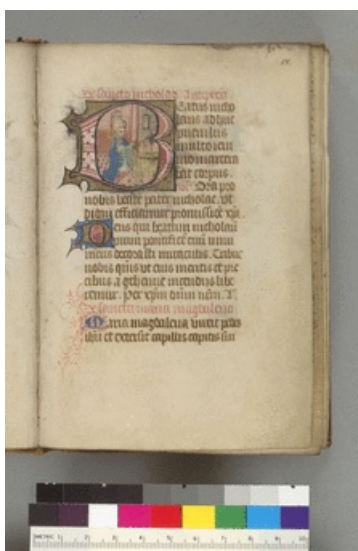 De sancto nicholao. Antiphona
Beatus nicho
laus adhuc
puerulus
multo ieiu
nio macera
bat corpus.
Ora pro
nobis beate pater nicholae. ut
digni efficiamur promissione xpi.
Deus qui beatum nicholaum
pontificem tuum innu
meris decorasti miraculis. Tribue
nobis quesumus ut eius meritis et pre
cibus a gehenne incendiis libe
remur. Per xpm dnm nrm.
De sancta maria magdalena
Maria magdalena unxit pedes
et extersit capillis capitis sui